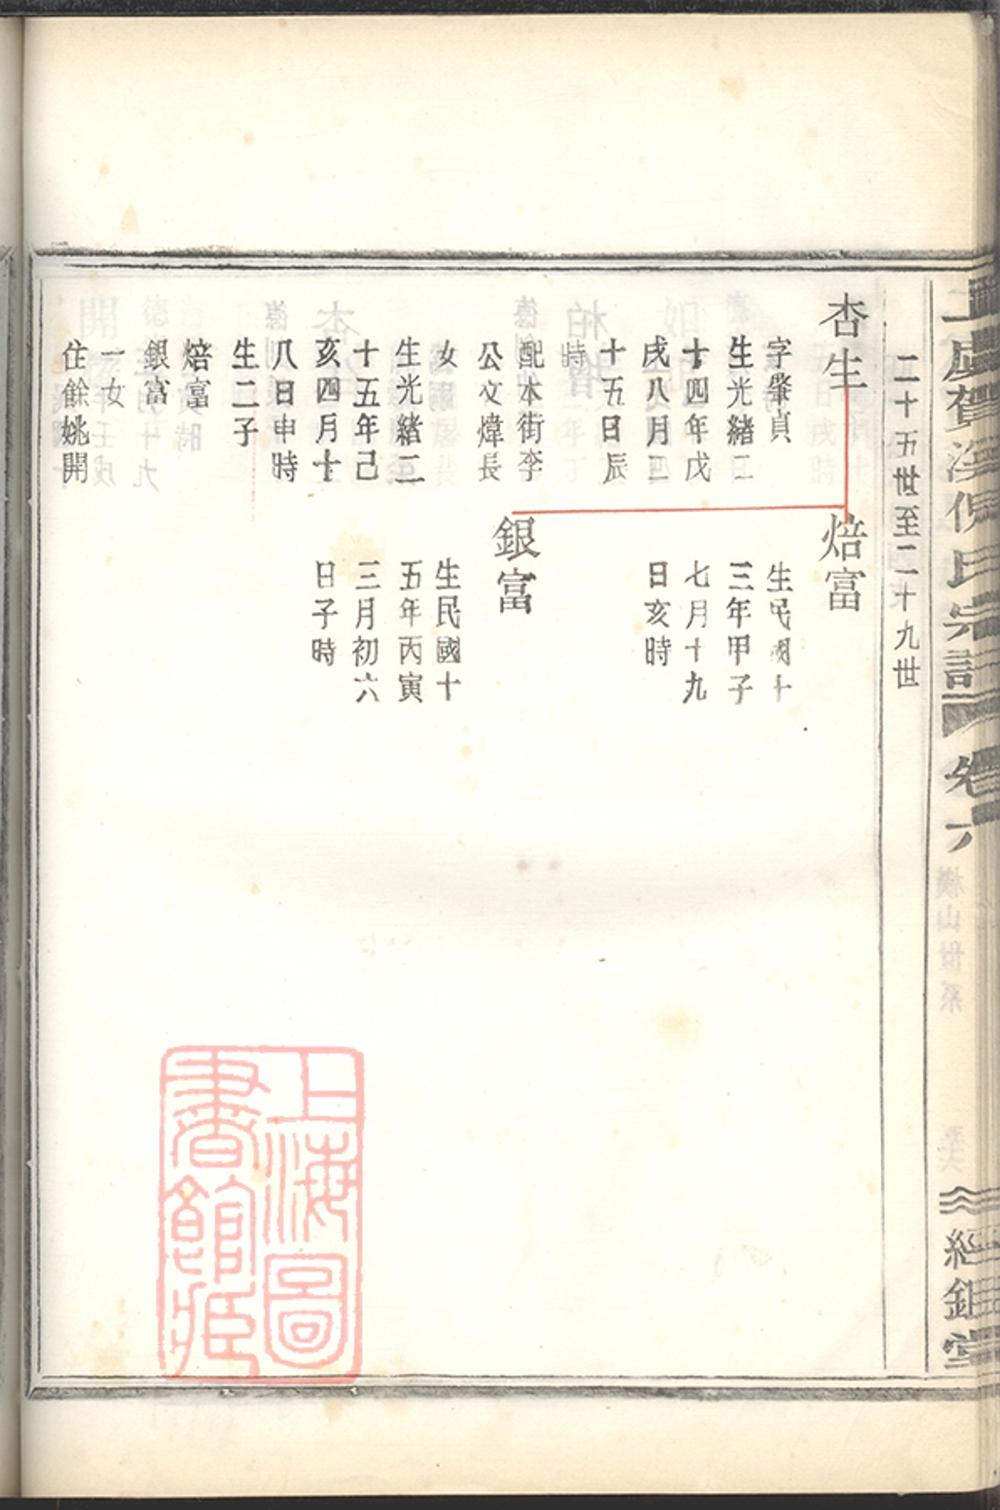 賀溪倪氏宗譜 卷六
二十五世至二十九世
杏生
字肇貞
生光緒二
十四年戊
戌八月二
十五日辰
時
配本街李
公文煒長
女
生光緒二
十五年己
亥四月十
八日申時
生二子
焙富
銀富
一女
住餘姚開
焙富
生民國十
三年甲子
七月十九
日亥時
銀富
生民國十
五年丙寅
三月初六
日子時
經鉏堂
上海圖
書館藏